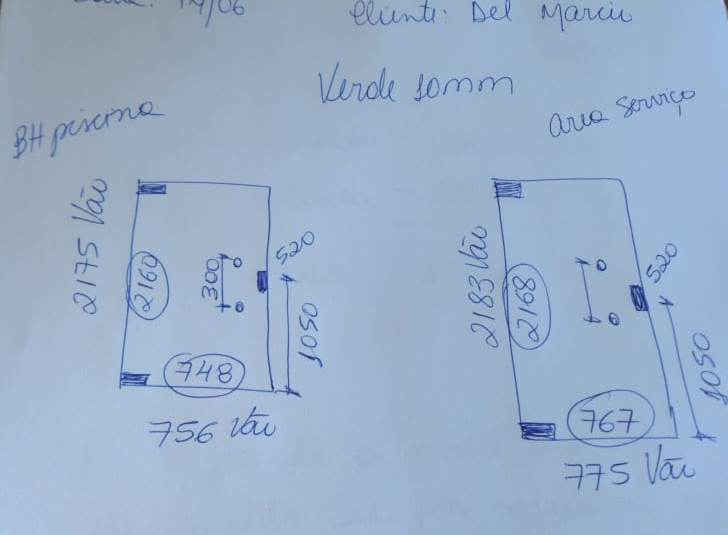 14/06
Cliente: Del Marcii
Verde 10mm
BH piscina
2175 Vão
2160
300
520
1050
748
756 Vão
area serviço
2183 Vão
2168
520
1050
767
775 Vão